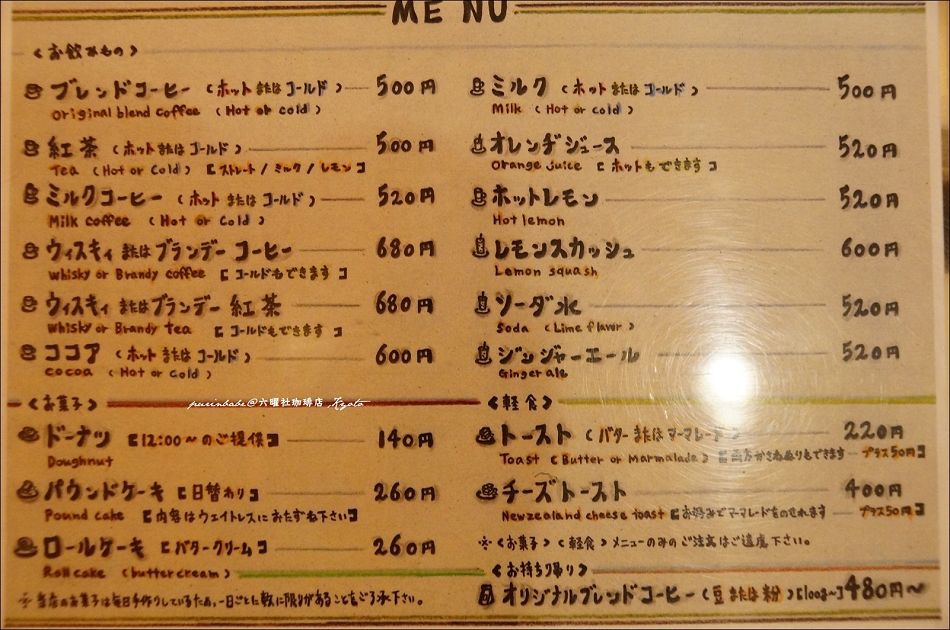 MENU
〈お飲みもの〉
ブレンドコーヒー（ホットまたはコールド） 500円
Original blend coffee (Hot or cold)
紅茶（ホットまたはコールド） 500円
Tea (Hot or Cold) 【ストレート/ミルク/レモン】
ミルクコーヒー（ホットまたはコールド） 520円
Milk coffee (Hot or Cold)
ウィスキィまたはブランデーコーヒー 680円
Whisky or Brandy coffee 【コールドもできます】
ウィスキィまたはブランデー紅茶 680円
Whisky or Brandy tea 【コールドもできます】
ココア（ホットまたはコールド） 600円
Cocoa (Hot or Cold)
ミルク（ホットまたはコールド） 500円
Milk (Hot or cold)
オレンヂジュース 520円
Orange juice 【ホットもできます】
ホットレモン 520円
Hot lemon
レモンスカッシュ 600円
Lemon squash
ソーダ水 520円
Soda (Lime flavor)
ジンジャーエール 520円
Ginger ale
purinbabe@六曜社珈琲店 , Kyoto
〈お菓子〉
ドーナツ【12:00〜のご提供】 140円
Doughnut
パウンドケーキ【日替わり】 260円
Pound cake 【内容はウェイトレスにおたずね下さい】
ロールケーキ【バタークリーム】 260円
Roll cake (buttercream)
※当店のお菓子は毎日手作りしているため、一日ごとに数に限りがあることをご了承下さい。
〈軽食〉
トースト（バターまたはマーマレード） 220円
Toast (Butter or Marmalade) 【両方かさねぬりもできます―プラス50円】
チーズトースト 400円
Newzealand cheese toast 【お好みでマーマレードをのせれます―プラス50円】
※〈お菓子〉〈軽食〉メニューのみのご注文はご遠慮下さい。
〈お持ち帰り〉
オリジナルブレンドコーヒー（豆または粉）【100g〜】480円〜